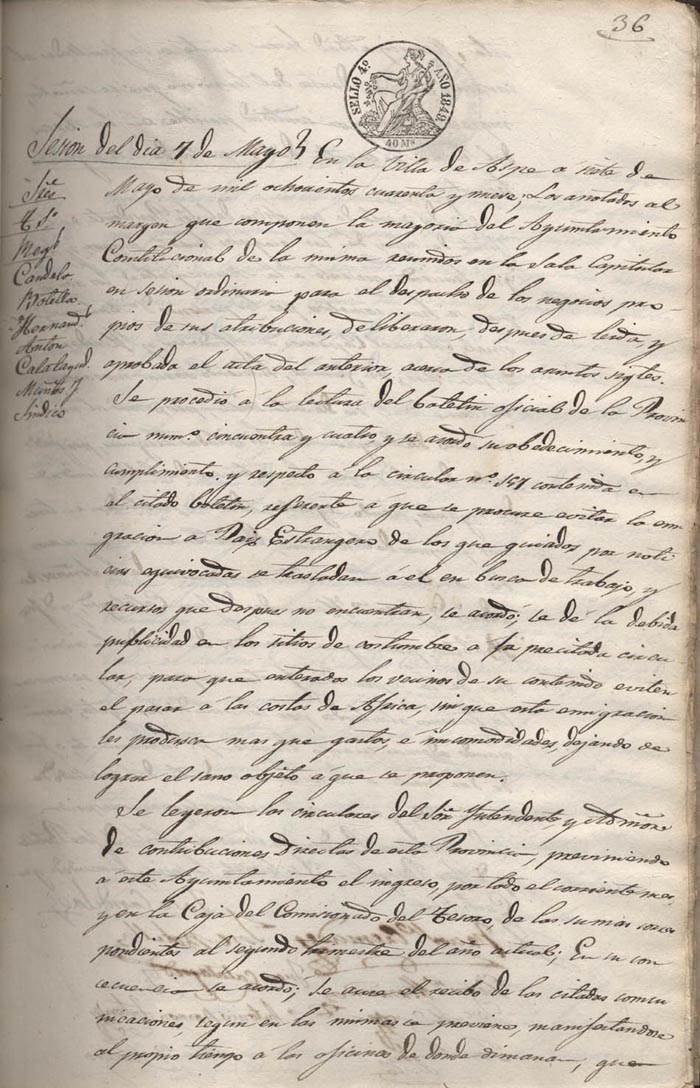 36
SELLO 4º AÑO 1849.
40 Ms
Sesion del dia 7 de Mayo
Sres
Regb
Candela
Botella
Hernand
Anton
Calatayud
Muñoz
Sindico
En la Villa de Aspe a siete de
Mayo de mil ochocientos cuarenta y nueve: Los anotados al
margen que componen la mayoria del Ayuntamiento
Constitucional de la misma reunidos en la Sala Capitular
en sesion ordinaria para el despacho de los negocios pro-
pios de sus atribuciones, deliberaron, despues de leida y
aprobada el acta del anterior, acerca de los asuntos sigtes.
Se procedió a la lectura del boletin oficial de la Provin
cia numº cincuenta y cuatro y se acordó su obedecimiento, y
cumplimiento. y respecto a la circular nº 157 contenida en
al citado boletin, referente á que se procure evitar la emi
gracion a Pais Estrangero de los que guiados por noti
cias equivocadas se trasladan á el en busca de trabajo, y
recursos que despues no encuentran, se acordó; se dé la debida
publicidad en los sitios de costumbre a la precitada circu
lar, para que enterados los vecinos de su contenido eviten
el pasar á las costas de Africa, sin que esta emigracion
les produsca mas que gastos, é incomodidades, dejando de
lograr el sano objeto á que se proponen.
Se leyeron las circulares del Sor Intendente, y Admor
de contribuciones Directas de esta Provincia, previniendo
á este Ayuntamiento el ingreso, por todo el corriente mes,
y en la Caja del Comisionado del Tesoro, de las sumas corres
pondientes al segundo trimestre del año actual; En su con
secuencia se acordó; se acuse el recibo de las citadas comu
nicaciones segun en las mismas se previene, manifestandose
al propio tiempo a las oficinas de donde dimanan, que